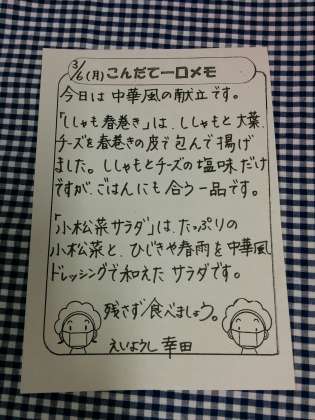 3/6(月)こんだて一口メモ
今日は中華風の献立です。
「ししゃも春巻き」は、ししゃもと大葉、
チーズを春巻きの皮で包んで揚げ
ました。ししゃもとチーズの塩味だけ
ですが、ごはんにも合う一品です。
「小松菜サラダ」は、たっぷりの
小松菜と、ひじきや春雨を中華風
ドレッシングで和えたサラダです。
残さず食べましょう。
えいようし 幸田